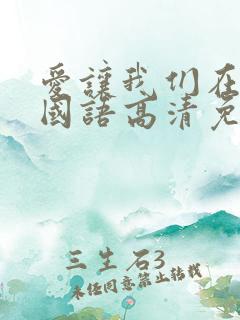 愛讓我们在
國語高清免
三生石3
未經同意禁止轉載